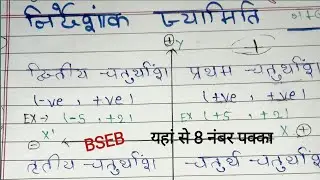 निर्देशांक ज्यामिति
+y
द्वितीय चतुर्थांश प्रथम चतुर्थांश
(-ve, +ve) (+ve, +ve)
EX→(-5, +2) EX (+5, +2)
x' BSEB यहां से 8 नंबर पक्का x
तृतीय चतुर्थांश चतुर्थ चतुर्थांश